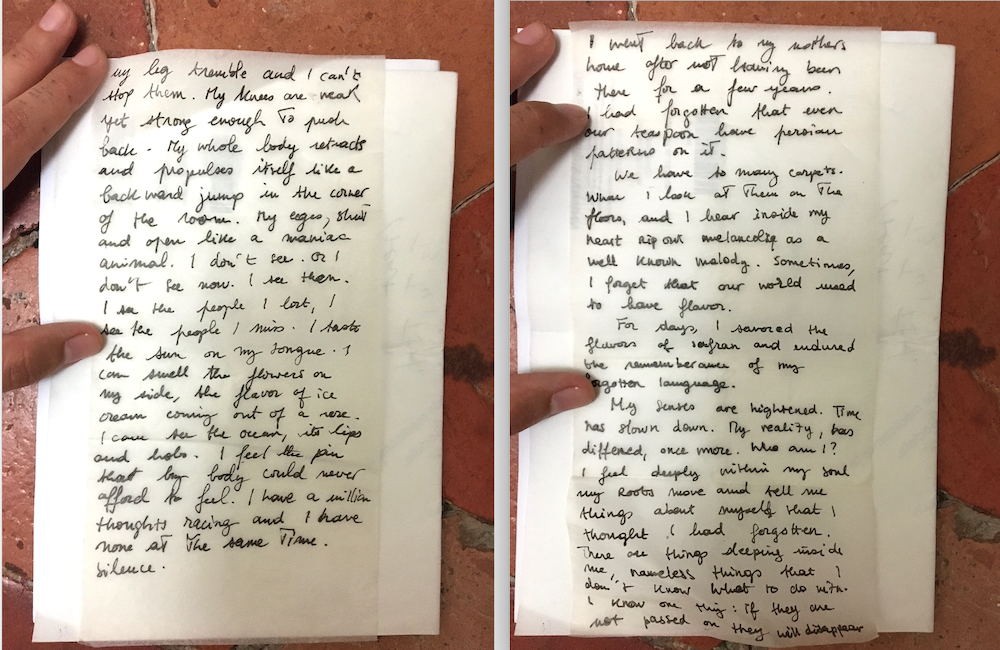 my leg tremble and I can't
stop them. My knees are weak
yet strong enough to push
back. My whole body retracts
and propulses itself like a
backward jump in the corner
of the room. My eyes, shut
and open like a maniac
animal. I don't see. Or I
don't see now. I see then.
I see the people I lost, I
see the people I miss. I taste
the sun on my tongue. I
can smell the flowers on
my side, the flavor of ice
cream coming out of a rose.
I can see the ocean, its lips
and
I feel the pain
that my body could never
afford to feel. I have a million
thoughts racing and I have
none at the same time.
Silence.
I went back to my mothers
home after not having been
there for a few years.
I had forgotten that even
our teaspoon have persian
patterns on it.
We have to many carpets.
When I look at them on the
floors, and I hear inside my
heart rip out melancoliq as a
well known malody. Sometimes,
I forget that our world used
to have flavor.
For days, I savored the
flavors of safran and endured
the rememberance of my
forgotten language.
My senses are hightened. Time
has slown down. My reality, has
differed, once more. Who am I?
I feel deeply within my soul
my roots move and tell me
things about myself that I
thought I had forgotten.
There are things sleeping inside
me, nameless things that I
don't know what to do with.
I know one thig: If they are
not passed on they will disappear